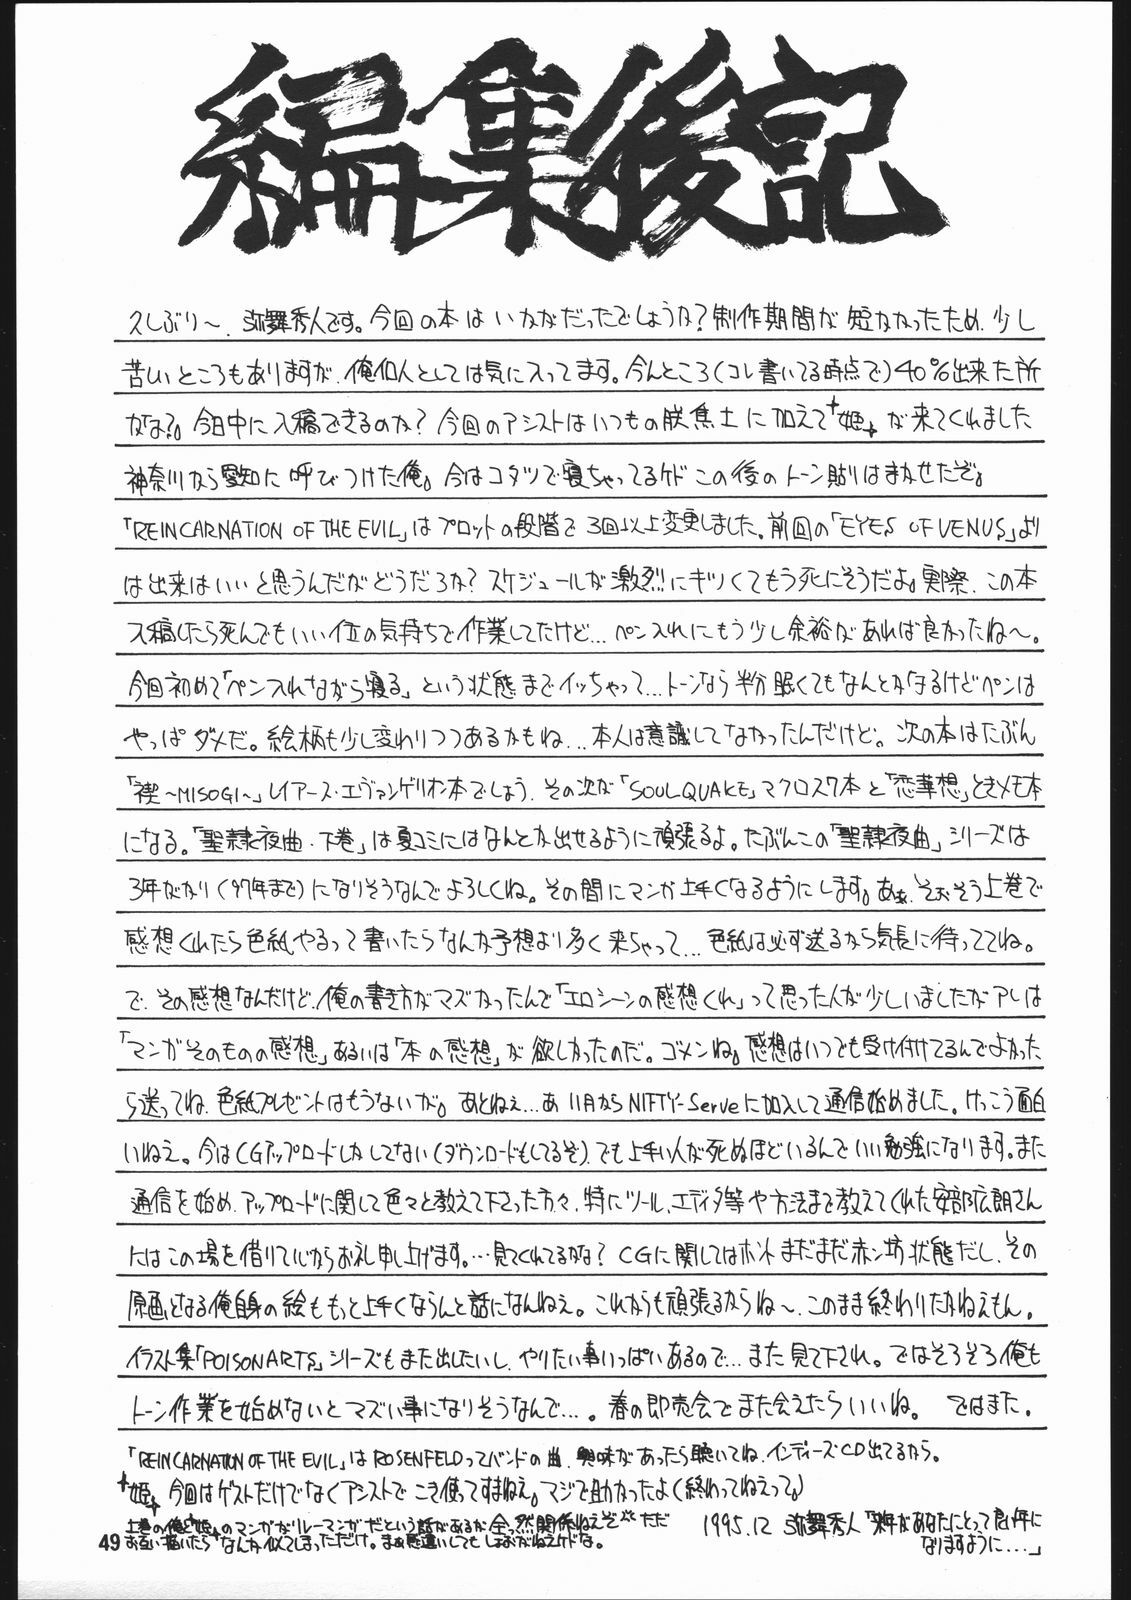 編集後記
久しぶり〜、弥舞秀人です。今回の本はいかがだったでしょうか？制作期間が短かかったため、少し
苦しいところもありますが、俺個人としては気に入ってます。今んところ(コレ書いてる時点で)40%出来た所
かな？。今日中に入稿できるのか？今回のアシストはいつもの朕焦土に加えて"姫"が来てくれました
神奈川から愛知に呼びつけた俺。今はコタツで寝ちゃってるケド この後のトーン貼りはまかせたぞ。
「REINCARNATION OF THE EVIL」はプロットの段階で3回以上変更しました。前回の「EYES OF VENUS」より
は出来はいいと思うんだがどうだろな？スケジュールが激烈にキツくてもう死にそうだよ。実際、この本
入稿したら死んでもいい位の気持ちで作業してたけど…ペン入れにもう少し余裕があれば良かったね〜。
今回初めて「ペン入れながら寝る」という状態までイッちゃって…トーンなら半分眠くてもなんとかなるけどペンは
やっぱダメだ。絵柄も少し変わりつつあるかもね…本人は意識してなかったんだけど。次の本はたぶん
「禊〜MISOGI〜」レイアース・エヴァンゲリオン本でしょう、その次が「SOUL QUAKE」マクロス7本と「恋華想」ときメモ本
になる。「聖隷夜曲・下巻」は夏コミにはなんとか出せるように頑張るよ。たぶんこの「聖隷夜曲」シリーズは
3年がかり(97年まで)になりそうなんでよろしくね。その間にマンガ上手くなるようにします。あぁ、そおそう上巻で
感想くれたら色紙やるって書いたらなんか予想より多く来ちゃって…色紙は必ず送るから気長に待っててね。
で、その感想なんだけど、俺の書き方がマズかったんで「エロシーンの感想くれ」って思った人が少しいましたがアレは
「マンガそのものの感想」あるいは「本の感想」が欲しかったのだ。ゴメンね。感想はいつでも受け付けてるんでよかった
ら送ってね、色紙プレゼントはもうないが。あとねぇ…あ 11月からNIFTY-Serveに加入して通信始めました。けっこう面白
いねえ。今はCGアップロードしかしてない(ダウンロードもしてるぞ)、でも上手い人が死ぬほどいるんでいい勉強になります。また
通信を始め、アップロードに関して色々と教えて下さった方々、特にツール、エディタ等や方法まで教えてくれた安部広朗さん
にはこの場を借りて心からお礼申し上げます。…見てくれてるかな？CGに関してはホントまだまだ赤ン坊状態だし、その
原画となる俺自身の絵ももっと上手くならんと話になんねえ。これからも頑張るからね〜、このまま終わりたかねえもん。
イラスト集「POISON ARTS」シリーズもまた出したいし、やりたい事いっぱいあるので…また見て下され。ではそろそろ俺も
トーン作業を始めないとマズい事になりそうなんで…。春の即売会でまた会えたらいいね。 ではまた。
「REINCARNATION OF THE EVIL」はROSENFELDってバンドの曲、興味があったら聴いてね、インディーズCD出てるから。
"姫"、今回はゲストだけでなくアシストでこき使ってすまねえ。マジで助かったよ(終わってねえって。)
上巻の俺と"姫"のマンガがリレーマンガだという話があるが全っ然関係ねえぞ ただ
お互い描いたらなんか似てしまっただけ。まあ勘違いしてもしょおがねえけどな。
1995.12 弥舞秀人「来年があなたにとって良い年に
なりますように…」
49